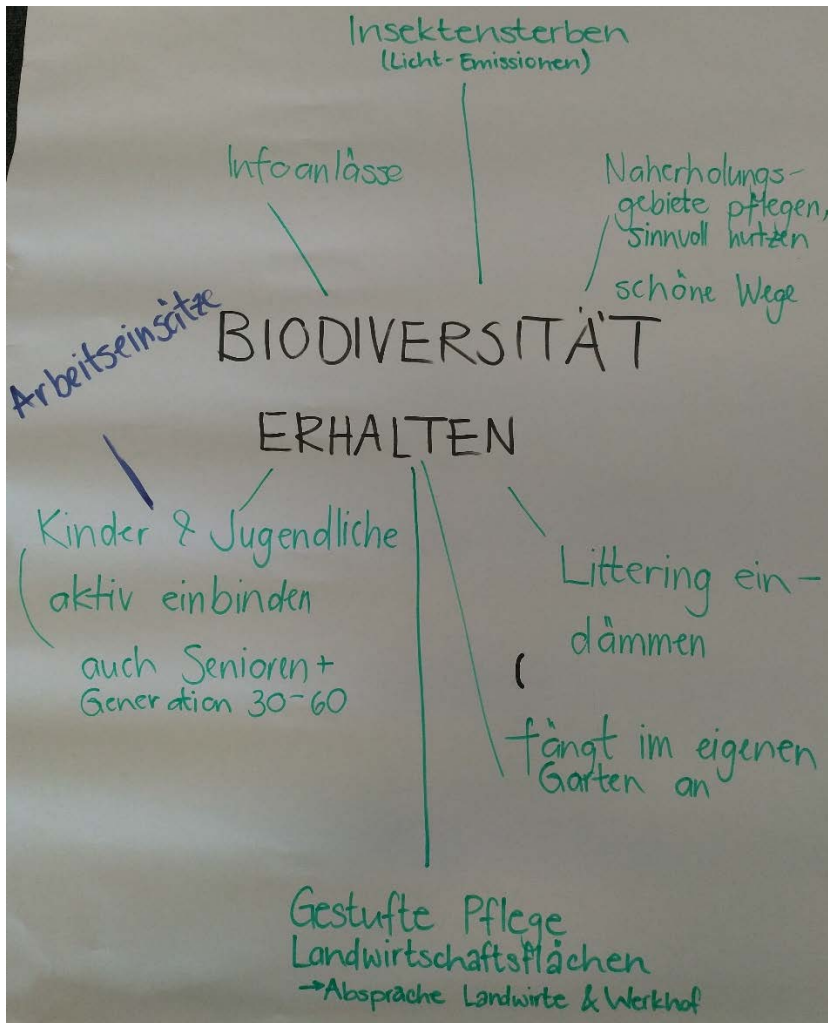 Insektensterben
(Licht-Emissionen)
Infoanlässe
Naherholungs-
gebiete pflegen,
sinnvoll nutzen
schöne Wege
Arbeitseinsätze
BIODIVERSITÄT
ERHALTEN
Kinder & Jugendliche
aktiv einbinden
auch Senioren +
Generation 30-60
Littering ein-
dämmen
fängt im eigenen
Garten an
Gestufte Pflege
Landwirtschaftsflächen
→Absprache Landwirte & Werkhof